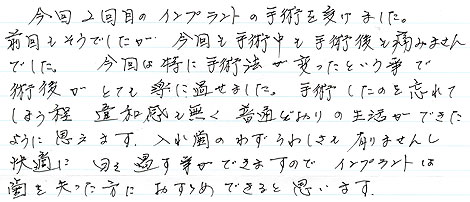 今回2回目のインプラントの手術を受けました。
前回もそうでしたが 今回も手術中も手術後も痛みません
でした。 今回は特に手術法が変ったという事で
術後がとても楽に過せました。手術したのを忘れて
しまう程 違和感も無く 普通どおりの生活ができた
ように思えます。入れ歯のわずらわしさも有りませんし
快適に日を過す事ができますので インプラントは
歯を失った方におすすめできると思います。